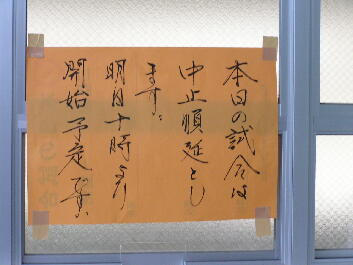 本日の試合は
中止順延とし
ます。
明日十時より
開始予定です。